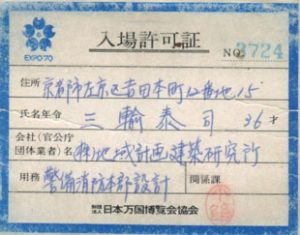 入場許可証
EXPO'70
NO. 3724
住所 京都市左京区吉田本町12番地15
氏名年令 三輪泰司 36才
会社(官公庁
団体業者)名 (株)地域計画建築研究所
用務 警備消防本部設計 関係課
財団法人 日本万国博覧会協会